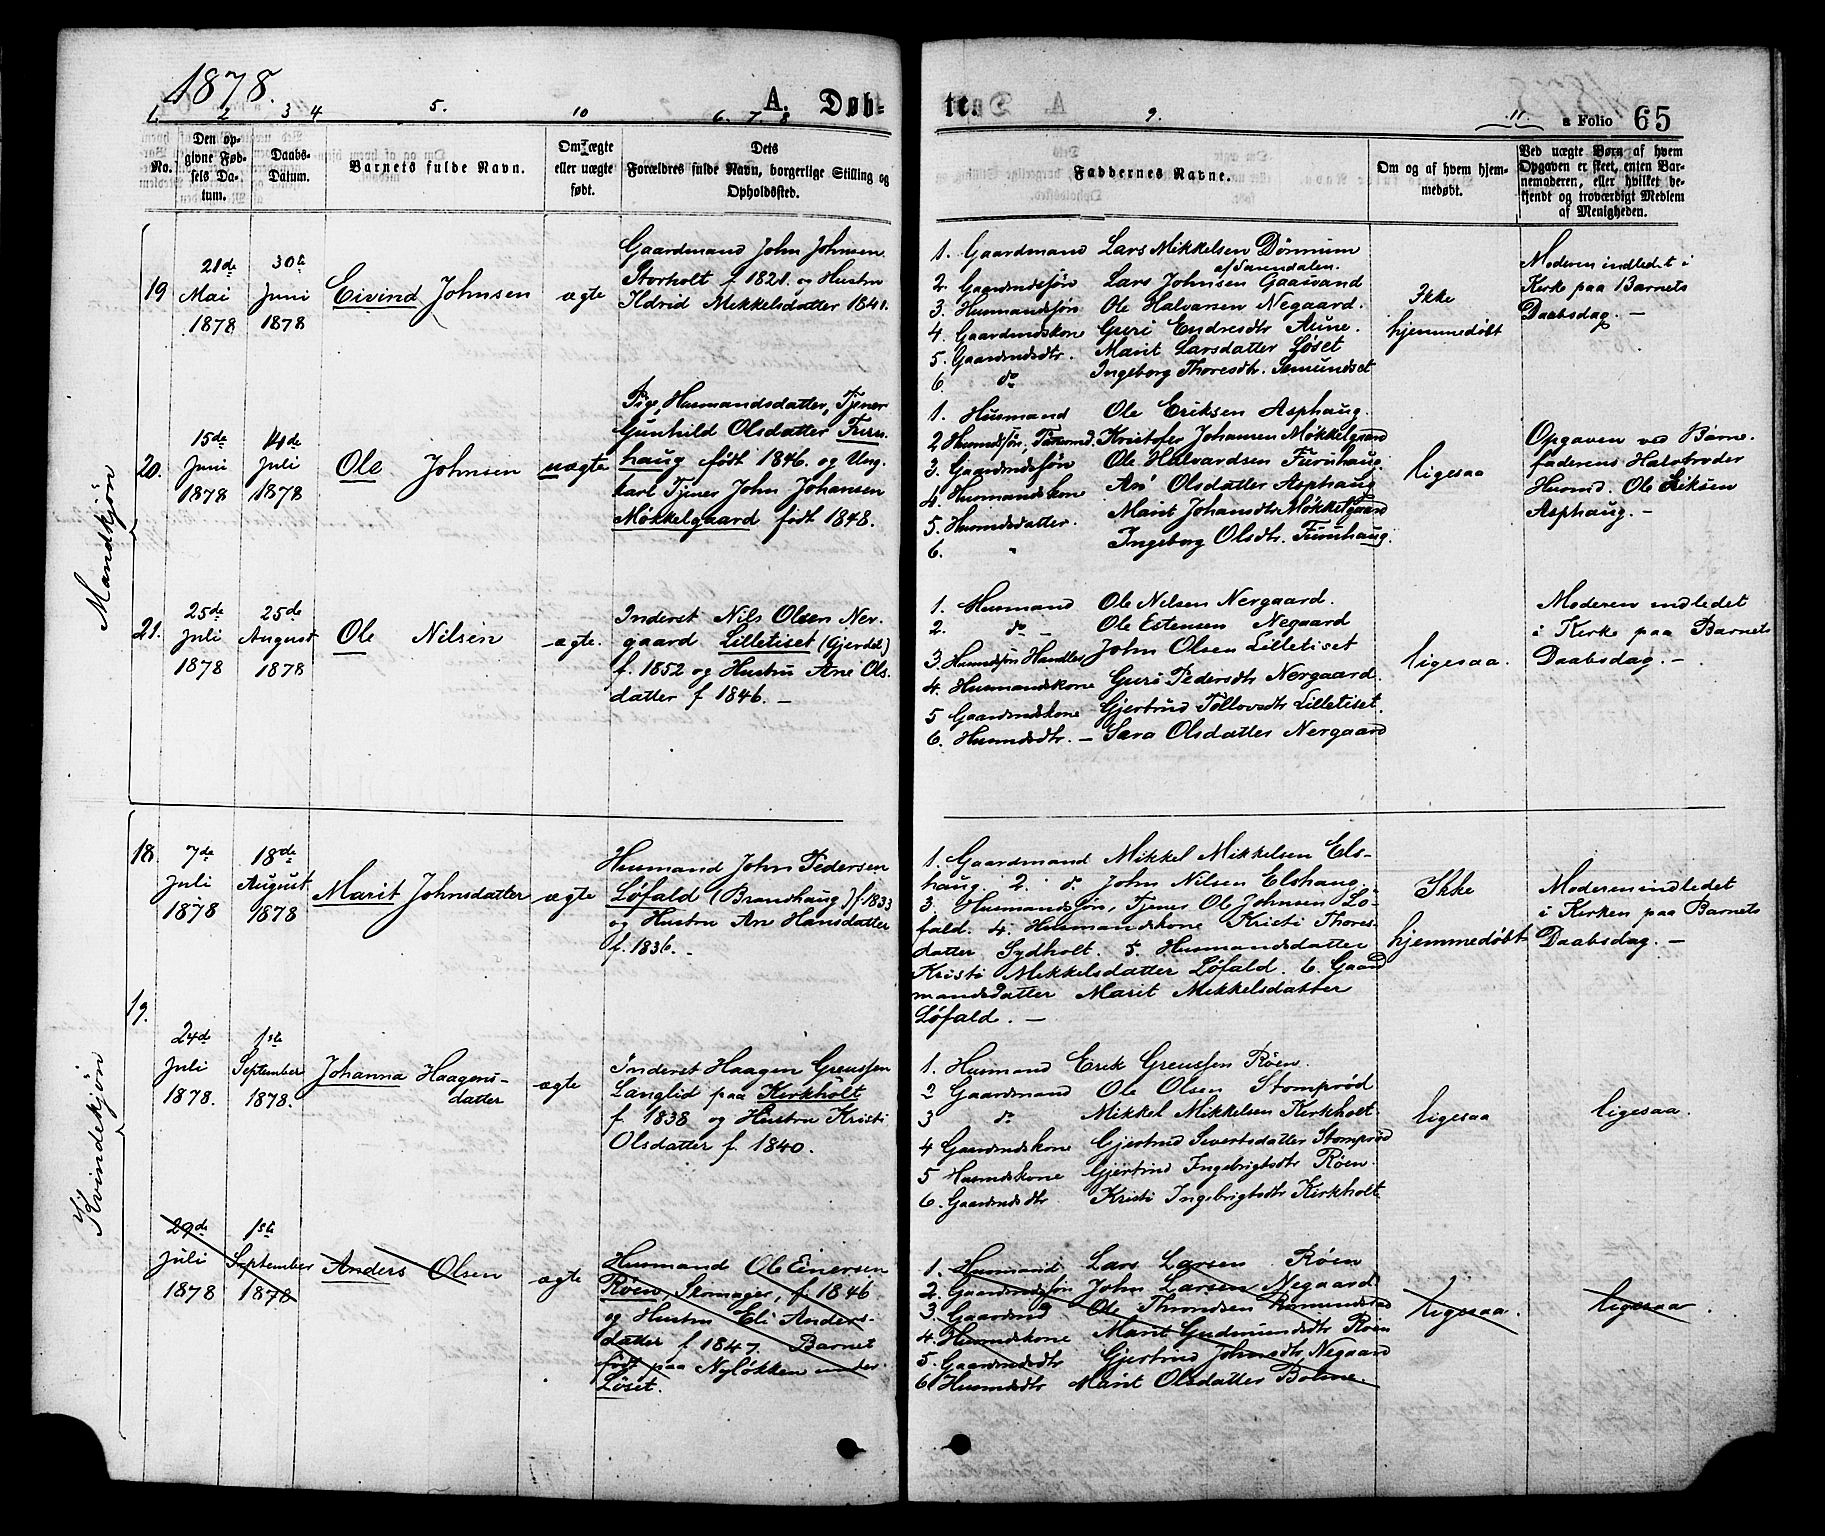 1878.
A. Døb-
te.
a Folio 65
1. 2 3 4 5. 10 6. 7. 8 9. 11.
No.
Den op-
givne Fød-
sels Da-
tum.
Daabs-
Datum.
Barnets fulde Navn.
Om ægte
eller uægte
født.
Dets
Forældres fulde Navn, borgerlige Stilling og
Opholdssted.
Faddernes Navne.
Om og af hvem hjem-
medøbt.
Ved uægte Børn af hvem
Opgaven er skeet, enten Bar-
nemoderen, eller hvilket be-
kjendt og troværdigt Medlem
af Menigheden.
Mandkjøn
19
21de
Mai
1878
30te
Juni
1878
Eivind Johnsen
ægte
Gaardmand John Johnsen
Storholt f 1821. og Hustru
Ildrid Mikkelsdatter 1841.
1. Gaardmand Lars Mikkelsen Dørrum
af Surendalen.
2. Gaardmdssøn Lars Johnsen Gaasvand
3. Husmandssøn Ole Halvarsen Negaard.
4. Gaardmdskone Guri Endresdtr Aune.
5. Gaardmdsdtr. Marit Larsdatter Løset
6. do Ingeborg Thoresdtr. Semundset
Ikke
hjemmedøbt
Moderen indledet i
Kirke paa Barnets
Daabsdag. –
20.
15de
Juni
1878
14de
Juli
1878
Ole Johnsen
uægte
Pige, Husmandsdatter, Tjener
Gunhild Olsdatter Furu-
haug født 1846. og Ung-
karl Tjener John Johansen
Møkkelgaard født 1848.
1. Husmand Ole Eriksen Asphaug.
2 Husmdssøn, Kristofer Johansen Møkkelgaard
3. Gaardmdssøn Ole Halvardsen Furuhaug.
4. Husmandskone Ane Olsdatter Asphaug
5. Husmdsdatter. Marit Johansdtr Møkkelgaard
6. " Ingeborg Olsdtr. Furuhaug.
ligesaa
Opgaven ved Barne-
faderens Halvbroder
Husmd. Ole Eriksen
Asphaug. –
21.
25de
Juli
1878
25de
August
1878
Ole Nilsen
ægte.
Inderst Nils Olsen Ner-
gaard Lilletiset (Gjerdet)
f. 1852 og Hustru Ane Ols-
datter f 1846. –
1. Husmand Ole Nilsen Nergaard.
2. do – Ole Estensen Negaard
3. Husmdssøn Handler John Olsen Lilletiset
4. Husmandskone Guri Pedersdtr Nergaard.
5 Gaardmdskone Gjertrud Tollovsdtr Lilletiset.
6. Husmdsdtr. – Sara Olsdatter Nergaard
ligesaa.
Moderen indledet
i Kirke paa Barnets
Daabsdag. –
Kvindekjøn
18.
7de
Juli
1878
18de
August
1878
Marit Johnsdatter
ægte
Husmand John Pedersen
Løfald (Brandhaug) f. 1833
og Hustru Ane Hansdatter
f. 1836. –
1. Gaardmand Mikkel Mikkelsen Els-
haug. 2. do. John Nilsen Elshaug.
3. Husmandssøn, Tjener Ole Johnsen Lø-
fald. 4. Husmandskone Kristi Thores-
datter Sydholt. 5. Husmandsdatter
Kristi Mikkelsdatter Løfald. 6. Gaard
mandsdatter Marit Mikkelsdatter
Løfald. –
Ikke
hjemmedøbt
Moderen indledet
i Kirken paa Barnets
Daabsdag. –
19.
24de
Juli
1878.
1ste
September
1878.
Johanna Haagens-
datter
ægte
Inderst Haagen Greussen
Langlid paa Kirkholt
f. 1838 og Hustru Kristi
Olsdatter f. 1840.
1. Husmand Erik Greussen Røen.
2 Gaardmand Ole Olsen Stomprød
3 do Mikkel Mikkelsen Kirkholt
4 Gaardmdskone Gjertrud Sivertsdatter Stomprød
5 Husmdskone Gjertrud Ingebrigtsdtr Røen.
6. Gaardmdsdtr Kristi Ingebrigtsdtr Kirkholt
ligesaa
ligesaa.
29de
Juli
1878
1ste
September
1878
Anders Olsen
ægte
Husmand Ole Einersen
Røen, Skomager, f. 1846
og Hustru Eli Anders-
datter f 1847. Barnet
født paa Nyløkken under
Løset.
1. Husmand Lars Larsen Røen
2. Gaardmdssøn John Larsen Negaard
3. Gaardmd Ole Throndsen Romundstad
4. Husmdskone Marit Gudmundsdtr Røen
5. Gaardmdsdtr Gjertrud Johnsdtr Negaard
6. Husmdsdtr Marit Olsdatter Bolme.
ligesaa.
ligesaa.